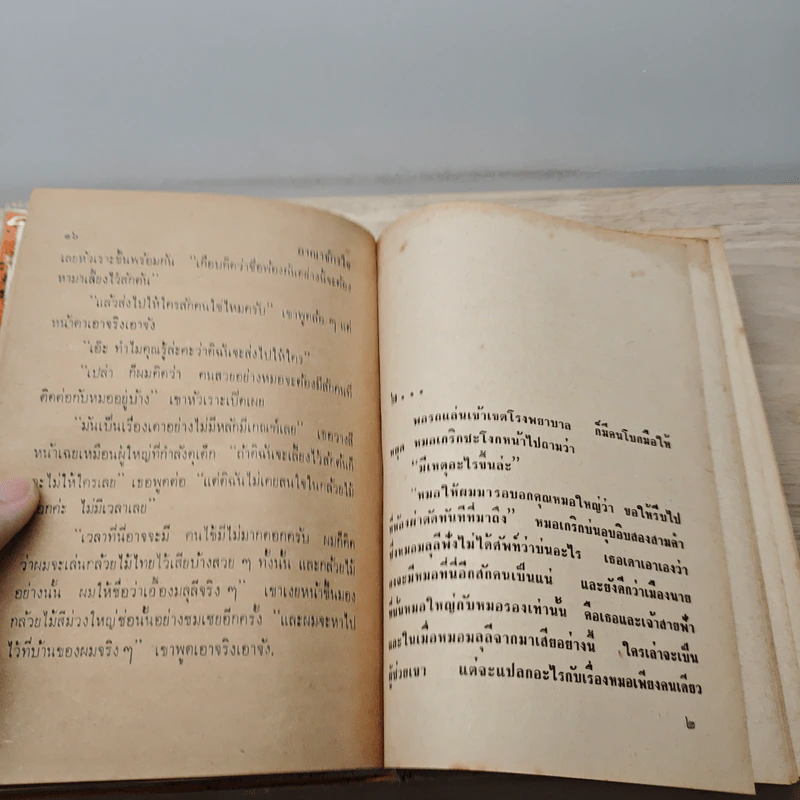 ๑๖ อาณาจักรใจ
เลยหัวเราะขึ้นพร้อมกัน "เกือบคิดว่าชื่อพ้องกันอย่างนี้จะต้อง
หามาเลี้ยงไว้สักต้น"
"แล้วส่งไปให้ใครสักคนใช่ไหมครับ" เขาพูดล้อ ๆ แต่
หน้าตาเอาจริงเอาจัง
"เอ๊ะ ทำไมคุณรู้ล่ะคะว่าดิฉันจะส่งไปให้ใคร"
"เปล่า ก็ผมคิดว่า คนสวยอย่างหมอจะต้องมีสักคนที่
ติดต่อกับหมออยู่บ้าง" เขาหัวเราะเปิดเผย
"มันเป็นเรื่องเดาอย่างไม่มีหลักมีเกณฑ์เลย" เธอวางสี
หน้าเฉยเหมือนผู้ใหญ่ที่กำลังดุเด็ก "ถ้าดิฉันจะเลี้ยงไว้สักต้นก็
จะไม่ให้ใครเลย" เธอพูดต่อ "แต่ดิฉันไม่เคยสนใจในกล้วยไม้
หรอกค่ะ ไม่มีเวลาเลย"
"เวลาที่นี่อาจจะมี คนไข้มีไม่มากดอกครับ ผมก็คิด
ว่าผมจะเล่นกล้วยไม้ไทยไว้เสียบ้างสวย ๆ ทั้งนั้น และกล้วยไม้
อย่างนั้น ผมให้ชื่อว่าเอื้องมลุลีจริง ๆ" เขาเงยหน้าขึ้นมอง
กล้วยไม้สีม่วงใหญ่ช่อนั้นอย่างชมเชยอีกครั้ง "และผมจะหาไป
ไว้ที่บ้านของผมจริง ๆ" เขาพูดเอาจริงเอาจัง.
๒...
พอรถแล่นเข้าเขตโรงพยาบาล ก็มีคนโบกมือให้
หยุด หมอเกริกชะโงกหน้าไปถามว่า
"มีเหตุอะไรขึ้นล่ะ"
"หมอให้ผมมารอบอกคุณหมอใหญ่ว่า ขอให้รีบไป
ที่ห้องผ่าตัดทันทีที่มาถึง" หมอเกริกบ่นอุบอิบสองสามคำ
ซึ่งหมอมลุลีฟังไม่ได้ศัพท์ว่าบ่นอะไร เธอเดาเอาเองว่า
คงจะมีหมอที่นี่อีกสักคนเป็นแน่ และยังดีกว่าเมืองนาย
ที่นั้นหมอใหญ่กับหมอรองเท่านั้น คือเธอและเจ้าสายฟ้า
และในเมื่อหมอมลุลีจากมาเสียอย่างนี้ ใครเล่าจะเป็น
ผู้ช่วยเขา แต่จะแปลกอะไรกับเรื่องหมอเพียงคนเดียว
๒